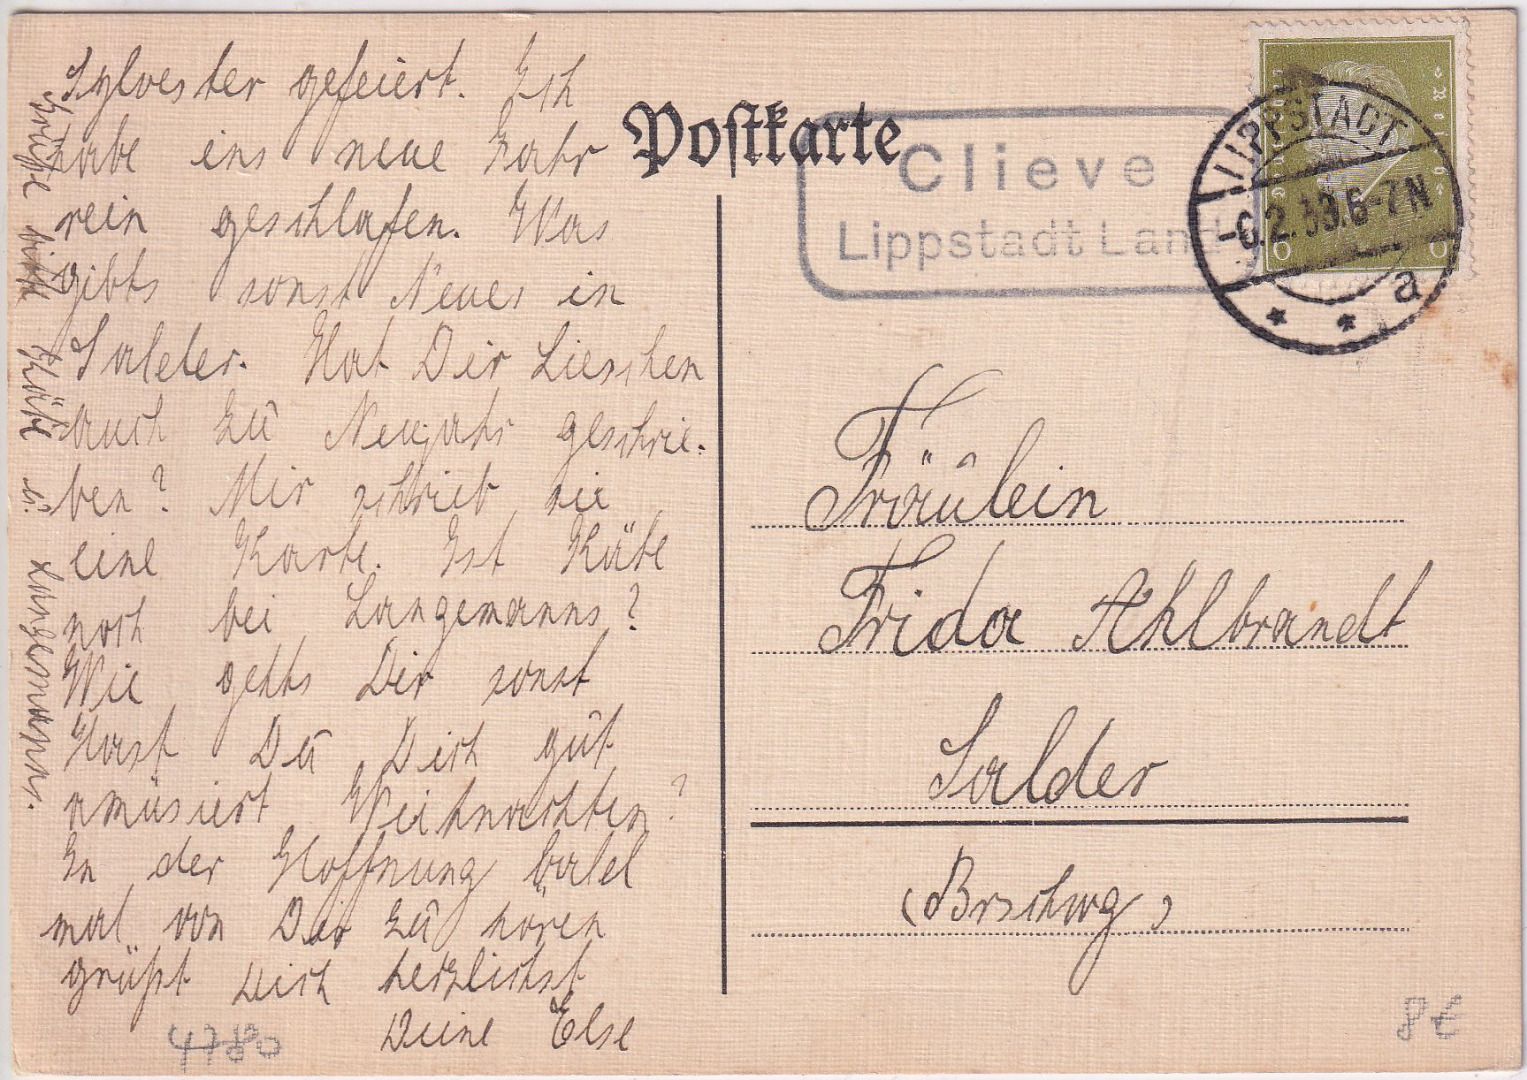 Sylvester gefeiert. Ich
habe ins neue Jahr
rein geschlafen. Was
gibts sonst Neues in
Salder. Hat Dir Lieschen
auch zu Neujahr geschrie-
ben? Mir schrieb sie
eine Karte. Ist Käte
noch bei Langemanns?
Wie gehts Dir sonst
Hast Du Dich gut
amüsiert Weihnachten?
In der Hoffnung bald
mal von Dir zu hören
grüßt Dich herzlichst
Deine Else
Grüße bitte Käte u. Langemanns.
Postkarte
Clieve
Lippstadt Land
LIPPSTADT
-6.2.33.6-7N
a
6 6
Fräulein
Frida Ahlbrandt
Salder
(Brschwg)
4780
8€